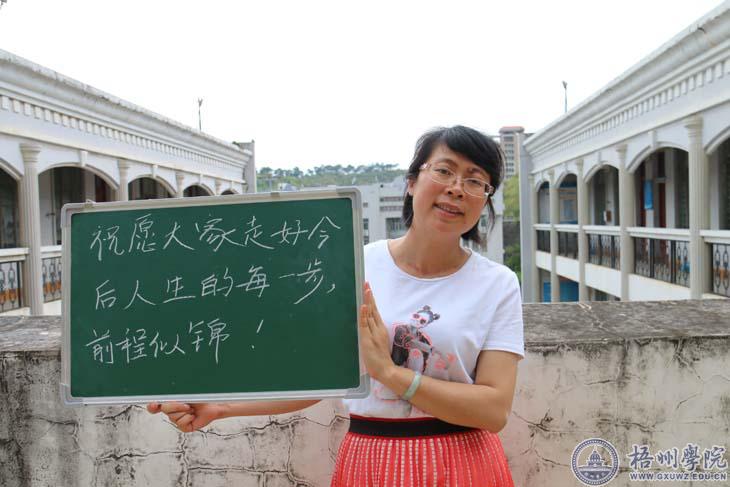 祝愿大家走好今
后人生的每一步，
前程似锦！
梧州學院
WWW.GXUWZ.EDU.CN